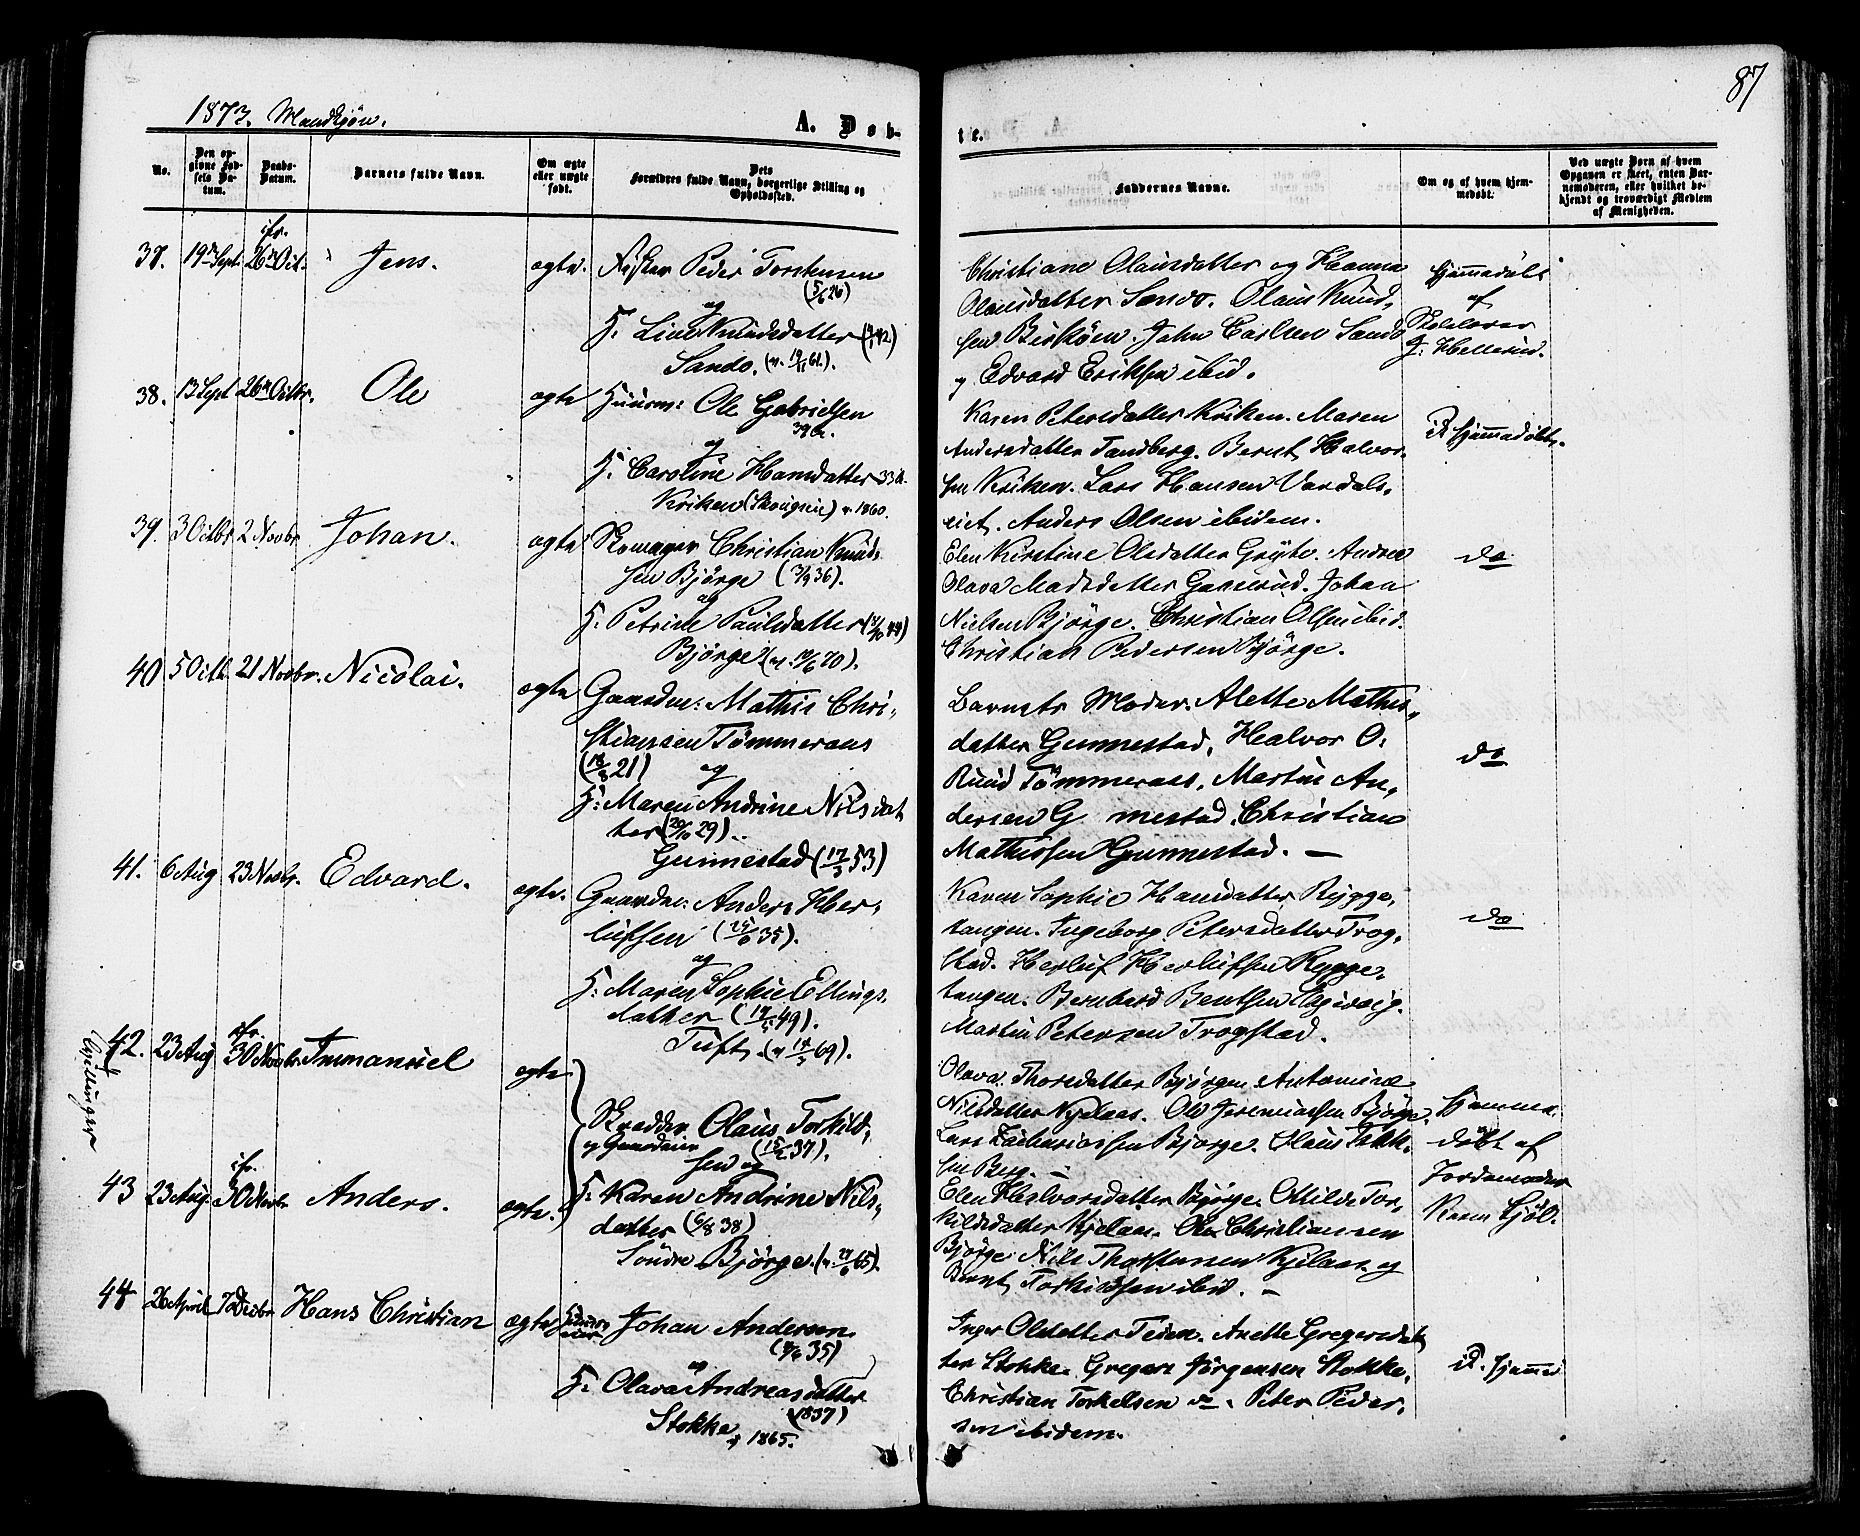 87
1873. Mandkjøn.
A. Døb-
te.
No.
Den op-
givne Fød-
sels Da-
tum.
Daabs-
Datum.
Barnets fulde Navn.
Om ægte
eller uægte
født.
Dets
Forældres fulde Navn, borgerlige Stilling og
Opholdssted.
Faddernes Navne.
Om og af hvem hjem-
medøbt.
Ved uægte Børn af hvem
Opgaven er skeet, enten Bar-
nemoderen, eller hvilket be-
kjendt og troværdigt Medlem
af Menigheden.
ifr.
37. 19de Sept. 26de Oct. Jens. ægte. Fisker Peder Torstensen
(5/6 26)
og
H. Line Knudsdatter
Sando.
Christiane Olausdatter og Hanna
Olausdatter Sando. Olaus Knud-
sen Biskøen. John Carlsen Sando
og Edvard Eriksen ibid.
hjemmedøbt
af
Skolelærer
J. Hellerud.
38. 13 Sept 26de Octbr. Ole ægte Huusm: Ole Gabrielsen
39 A.
og
H. Caroline Hansdatter 33 A.
Kriken 1860.
Karen Petersdatter Kriken. Maren
Andersdatter Tandberg. Bernt Halvor-
sen Kriken. Lars Hansen Vardals-
eiet. Anders Olsen ibidem.
ei hjemmedøbt.
39. 3 Octbr 2 Novbr Johan. ægte Skomager Christian Knud-
sen Bjørge (3/9 36).
og
H. Petrine Paulsdatter
Bjørge
Elen Kirstine Olsdatter Gryte. Andrea
Olava Madsdatter Johan
Nielsen Bjørge. Christian Olsen ibid.
Christian Pedersen Bjørge.
do
40 5 Octb. 21 Novbr. Nicolai. ægte Gaardm: Mathis Chri-
stiansen Tømmeraas
(18/3 21)
og
H: Maren Andrine Nilsdat
ter (20/10 29)..
Gunnestad (17/3 53)
Barnets Moder. Alette Mathis-
datter Gunnestad, Halvor O:
Ruud Tømmeraas, Martin An-
dersen G mestad. Christian
Mathissen Gunnestad. —
do
41. 6 Aug 23 Novbr. Edvard. ægte. Gaardm: Anders Her-
lufsen
og
H: Maren Sophie Ellings-
datter
Tuft.
Karen Sophie Hansdatter Rygge-
tangen. Ingeborg Petersdatter Trog-
stad. Herluf Herlufsen Rygge-
tangen. Bernhard Bentsen
Martin Petersen Trogstad.
do
ifr.
42. 23 Aug 30 Novbr. Immanuel ægte
Tvillinger
Skrædder Olaus Torkild-
og Gaardeier (15/2 37).
sen og
Olava Thorsdatter Bjørge. Antomine
Nilsdatter Kjelaas. Ole Jeremiassen Bjørge.
Lars Zachariassen Bjørge. Olaus
sen Berg. —
Hjemme-
døbt af
Jordemoder
Karen Hjøl.
ifr.
43 23 Aug. 30 Novbr Anders. ægte. H: Karen Andrine Nils-
datter (6/8 38)
Søndre Bjørge.
Elen Halvorsdatter Bjørge. Otilde Tor-
kildsdatter Kjelaas. Ole Christiansen
Bjørge. Nils Thorstensen Kjelaas og
Bernt Torkildsen ibid. —
44 26 April 7 Decbr Hans Christian ægte Huus-
eier Johan Andersen
og
H. Olava Andreasdatter
(1837)
Stokke 1865.
Inger Olsdatter Teien. Anette Gregersdat
ter Stokke. Gregers Jørgensen Stokke.
Christian Torkelsen do. Peter Peder-
sen ibidem.
ei hjemme